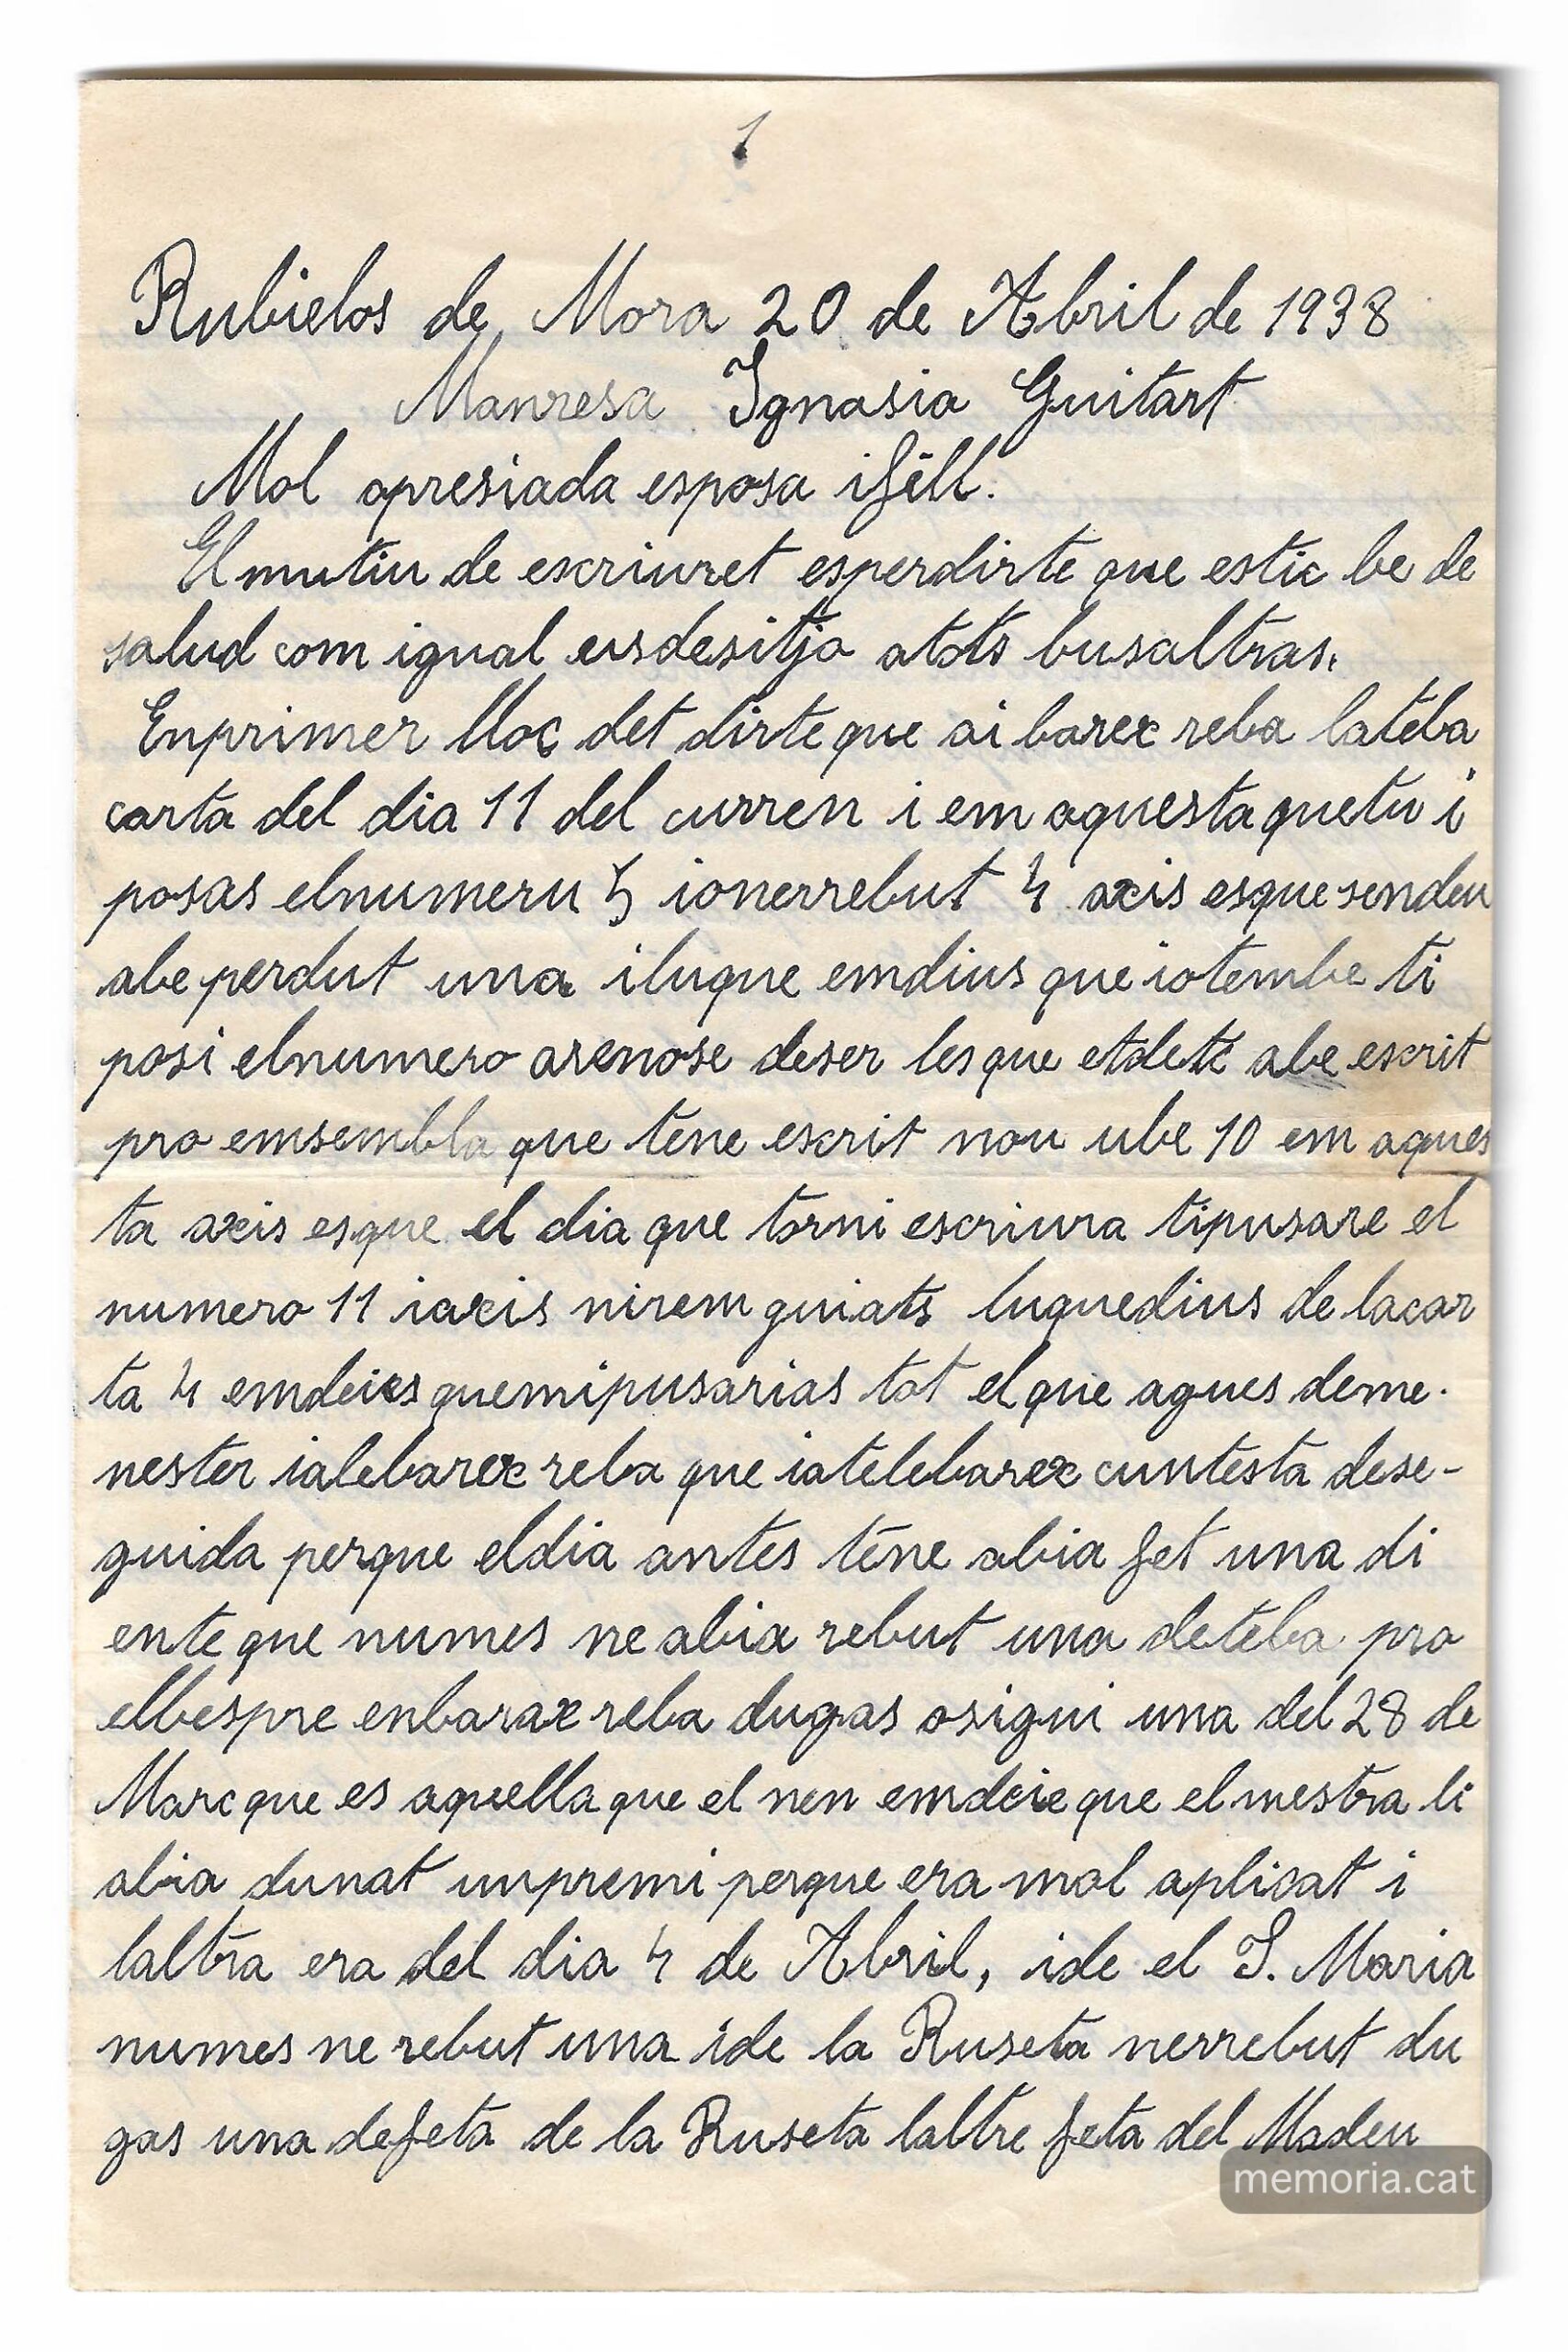 1
Rubielos de Mora 20 de Abril de 1938
Manresa Ignasia Guitart
Mol apresiada esposa ifill.
El mutiu de escriuret esperdirte que estic be de
salud com igual eusdesitjo atots busaltras.
Enprimer lloc det dirte que ai barex reba lateba
carta del dia 11 del curren i em aquesta quetu i
posas elnumeru 5 ionerrebut 4 axis esque sendeu
abe perdut una iluque emdius que iotembe ti
posi elnumero arenose deser lesque etdetc abe escrit
pro emsembla que tene escrit nou ube 10 em aques
ta axis esque el dia que torni escriura tipusare el
numero 11 iaxis nirem guiats luquedius de lacar
ta 4 emdeies quemipusarias tot elque agues deme.
nester ialebarex reba que iatelebarex cuntesta dese-
guida perque eldia antes tene abia fet una di
ente que numes ne abia rebut una deteba pro
elbespre enbarax reba dugas osigui una del 28 de
Marc que es aquella que el nen emdeie que el mestra li
abia dunat unpremi perque era mol aplicat i
laltra era del dia 4 de Abril, ide el J. Maria
numes ne rebut una ide la Ruseta nerrebut du
gas una defeta de la Ruseta laltre feta del Madeu
memoria.cat